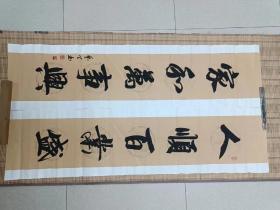 家和萬事興
人順百業盛